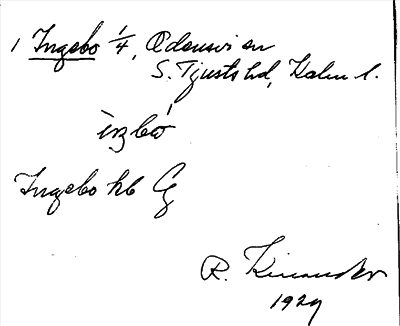 1 Ingebo 1/4, Odensvi sn
S. Tjusts hd, Kalm l.
ìŋbó
Ingebo hb Gg
R.
1929